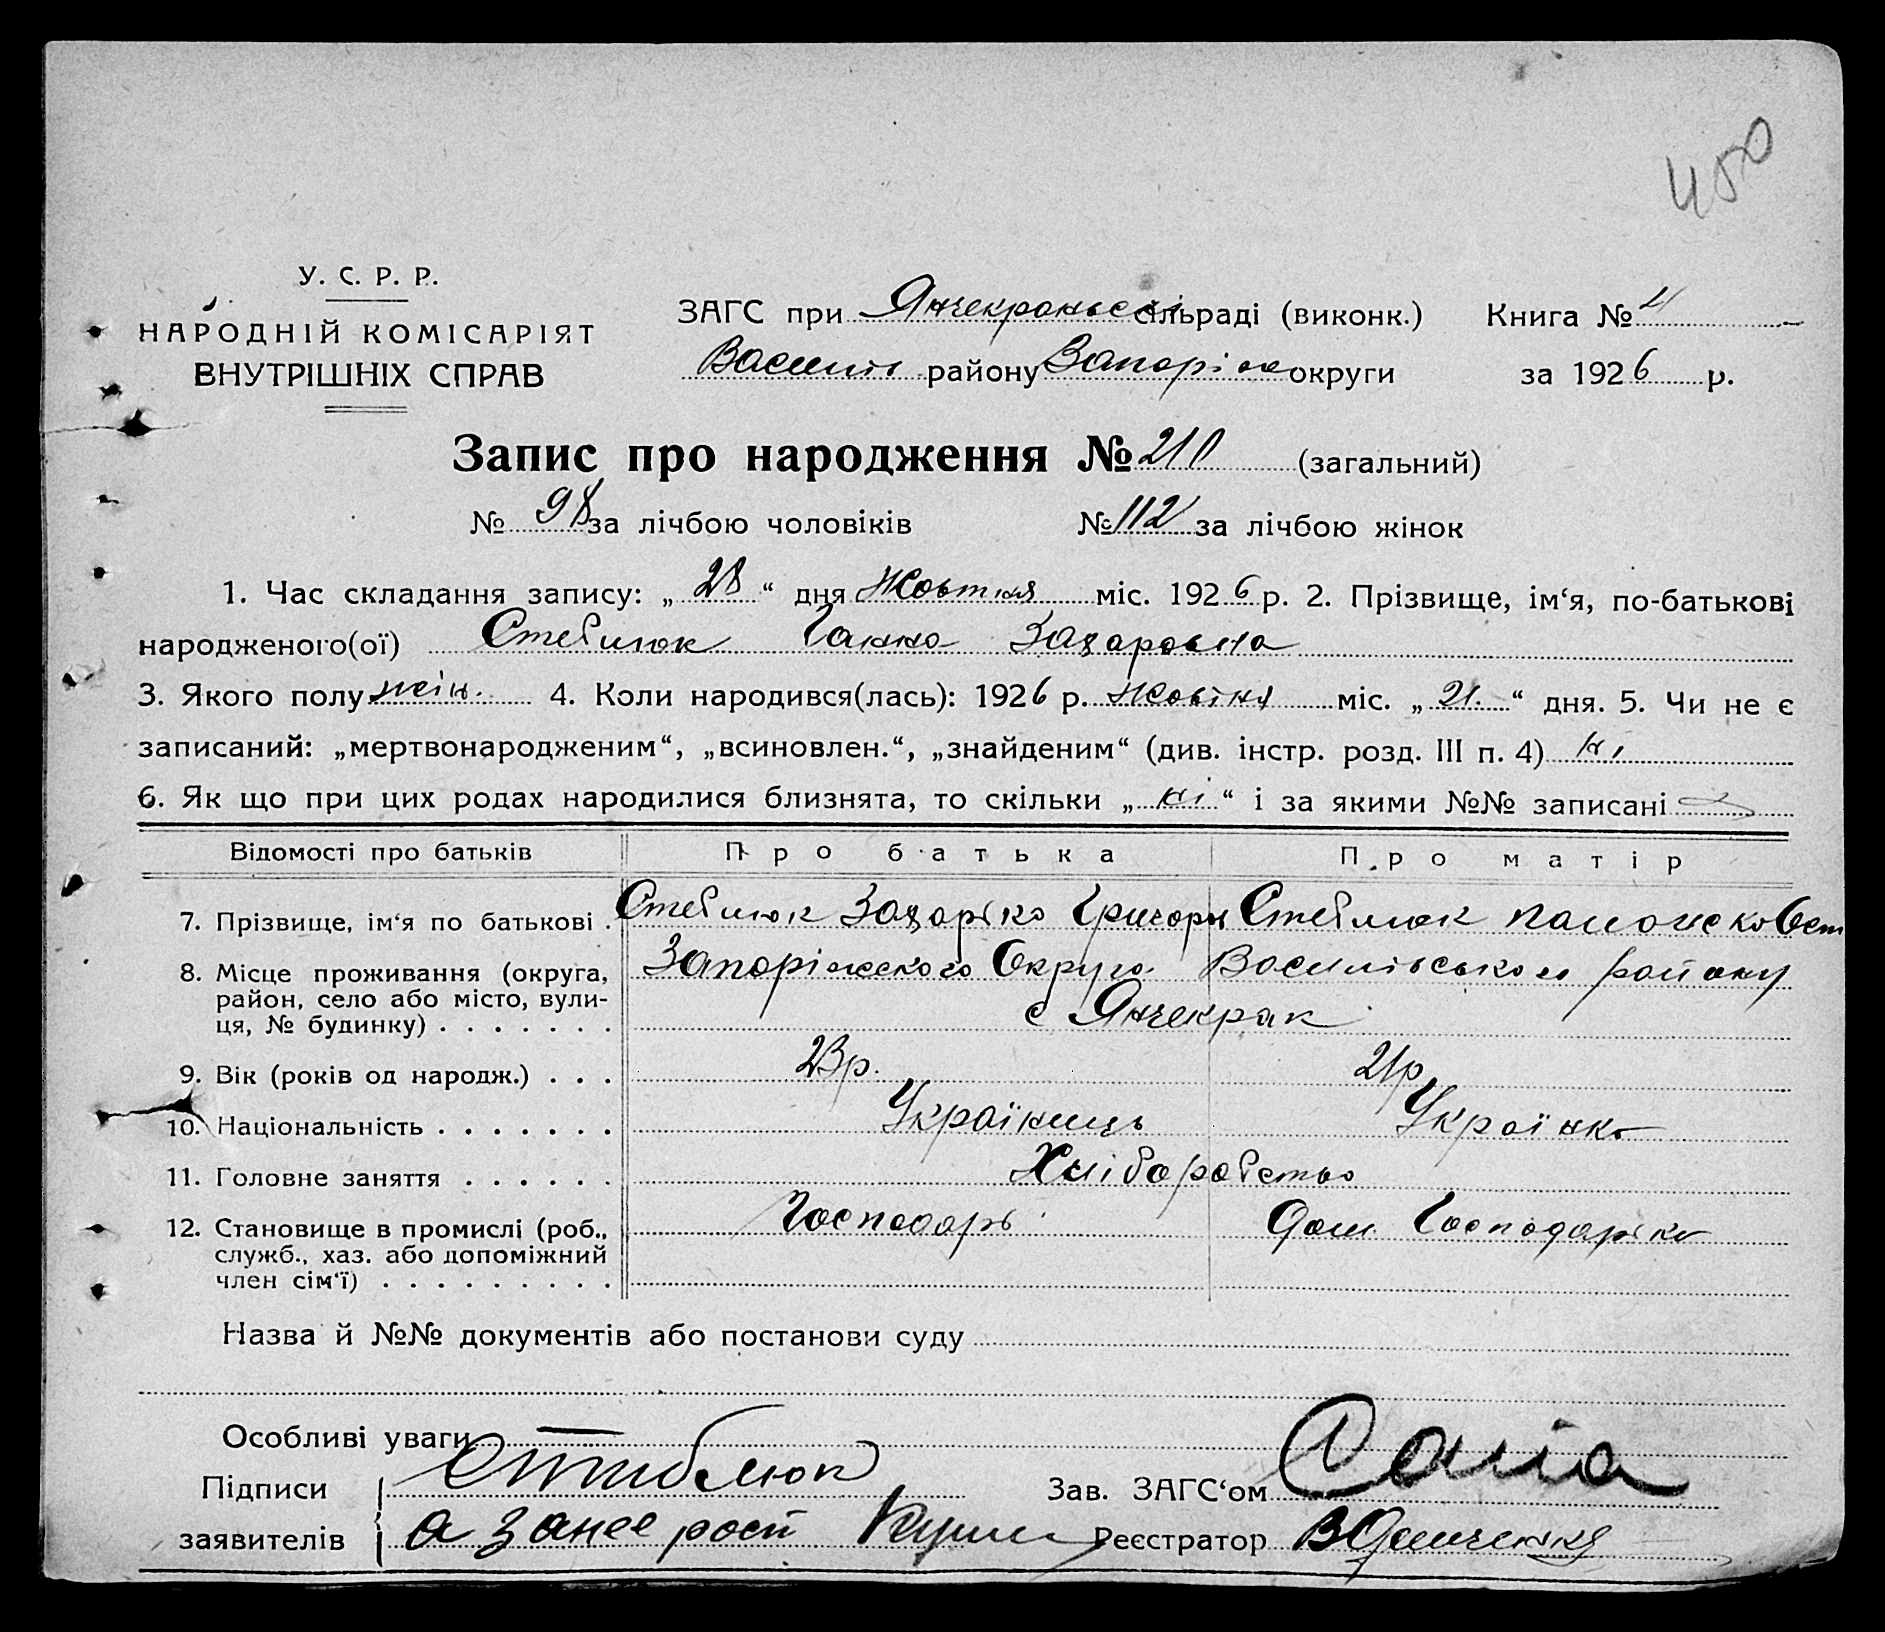 450
У. С. Р. Р.
НАРОДНІЙ КОМІСАРІЯТ
ВНУТРІШНІХ СПРАВ
ЗАГС при Янчекраньскі сільраді (виконк.) Книга № 4
Василів району Запоріж округи за 1926 р.
Запис про народження № 210 (загальний)
№ 98 за лічбою чоловіків № 112 за лічбою жінок
1. Час складання запису: „ 28 “ дня Жовтня міс. 1926 р. 2. Прізвище, ім‘я, по-батькові
народженого(ої) Стеблюк Ганна Захаровна
3. Якого полу жін. 4. Коли народився(лась): 1926 р. Жовтня міс. „ 21. “ дня. 5. Чи не є
записаний: „мертвонародженим“, „всиновлен.“, „знайденим“ (див. інстр. розд. III п. 4) ні
6. Як що при цих родах народилися близнята, то скільки „ ні “ і за якими №№ записані
Відомості про батьків Про батька Про матір
7. Прізвище, ім‘я по батькові . Стеблюк Захарко Григоров Стеблюк
8. Місце проживання (округа, район, село або місто, вулиця, № будинку) . . . . . . . Запоріжского Округа Васильівського району
с Янчекрак
9. Вік (років од народж.) . . . 23р. 21р
10. Національність . . . . . . . Українець Українка
11. Головне заняття . . . . . . Хліборобство
12. Становище в промислі (роб., служб., хаз. або допоміжний член сім‘ї) . . . . . . . . . Господарь Дом. Господарка
Назва й №№ документів або постанови суду
Особливі уваги
Підписи заявителів Стеблюк
а за нее рост
Зав. ЗАГС‘ом
Реєстратор